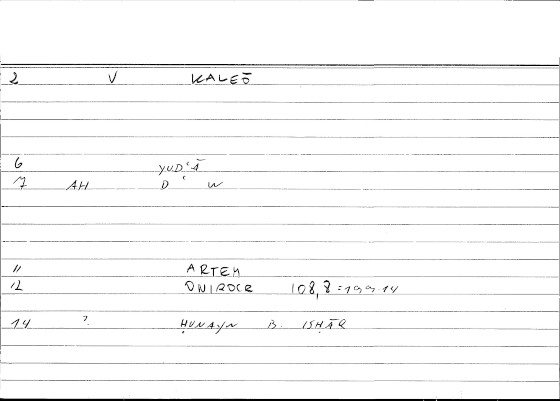 2 V KALEŌ
6 YUDʿĀ
7 AH D ʿ W
11 ARTEM
12 ONIROCR 108,8 = 199.14
14 ? ḤUNAYN B. ISḤĀQ